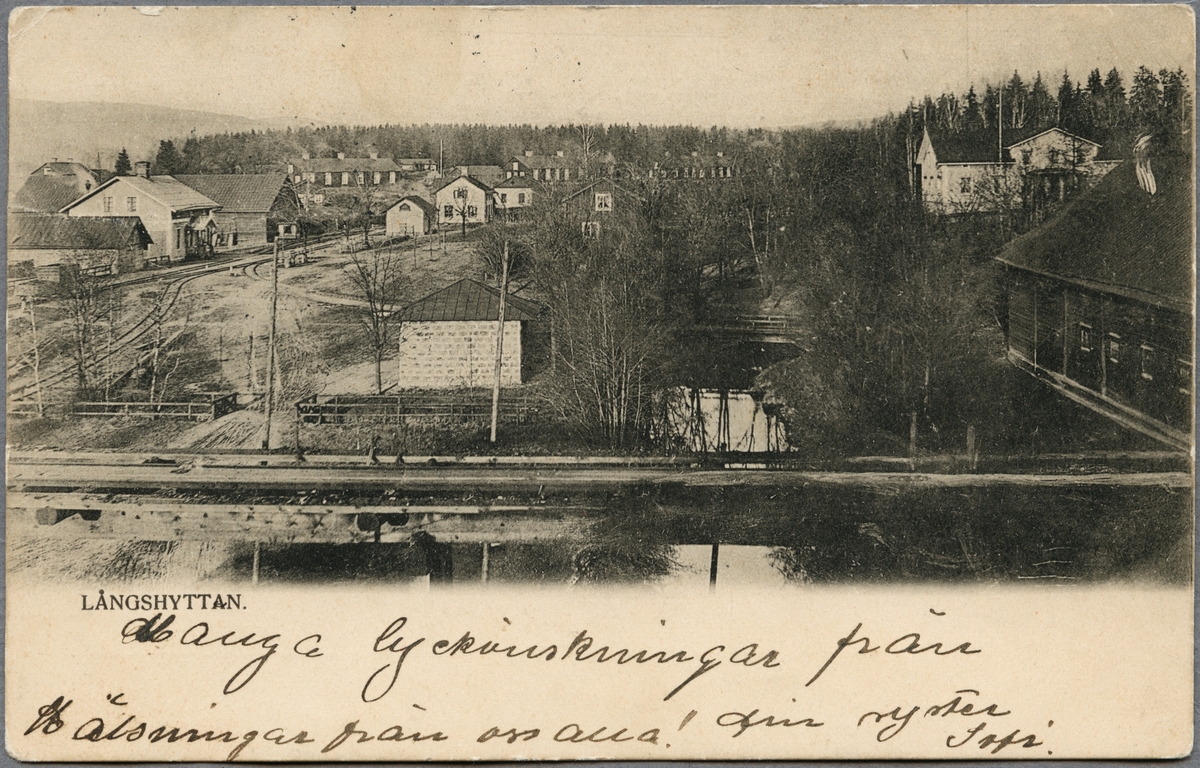 LÅNGSHYTTAN.
Många lyckönskningar från
Hälsningar från oss alla! din syster
Sofi.